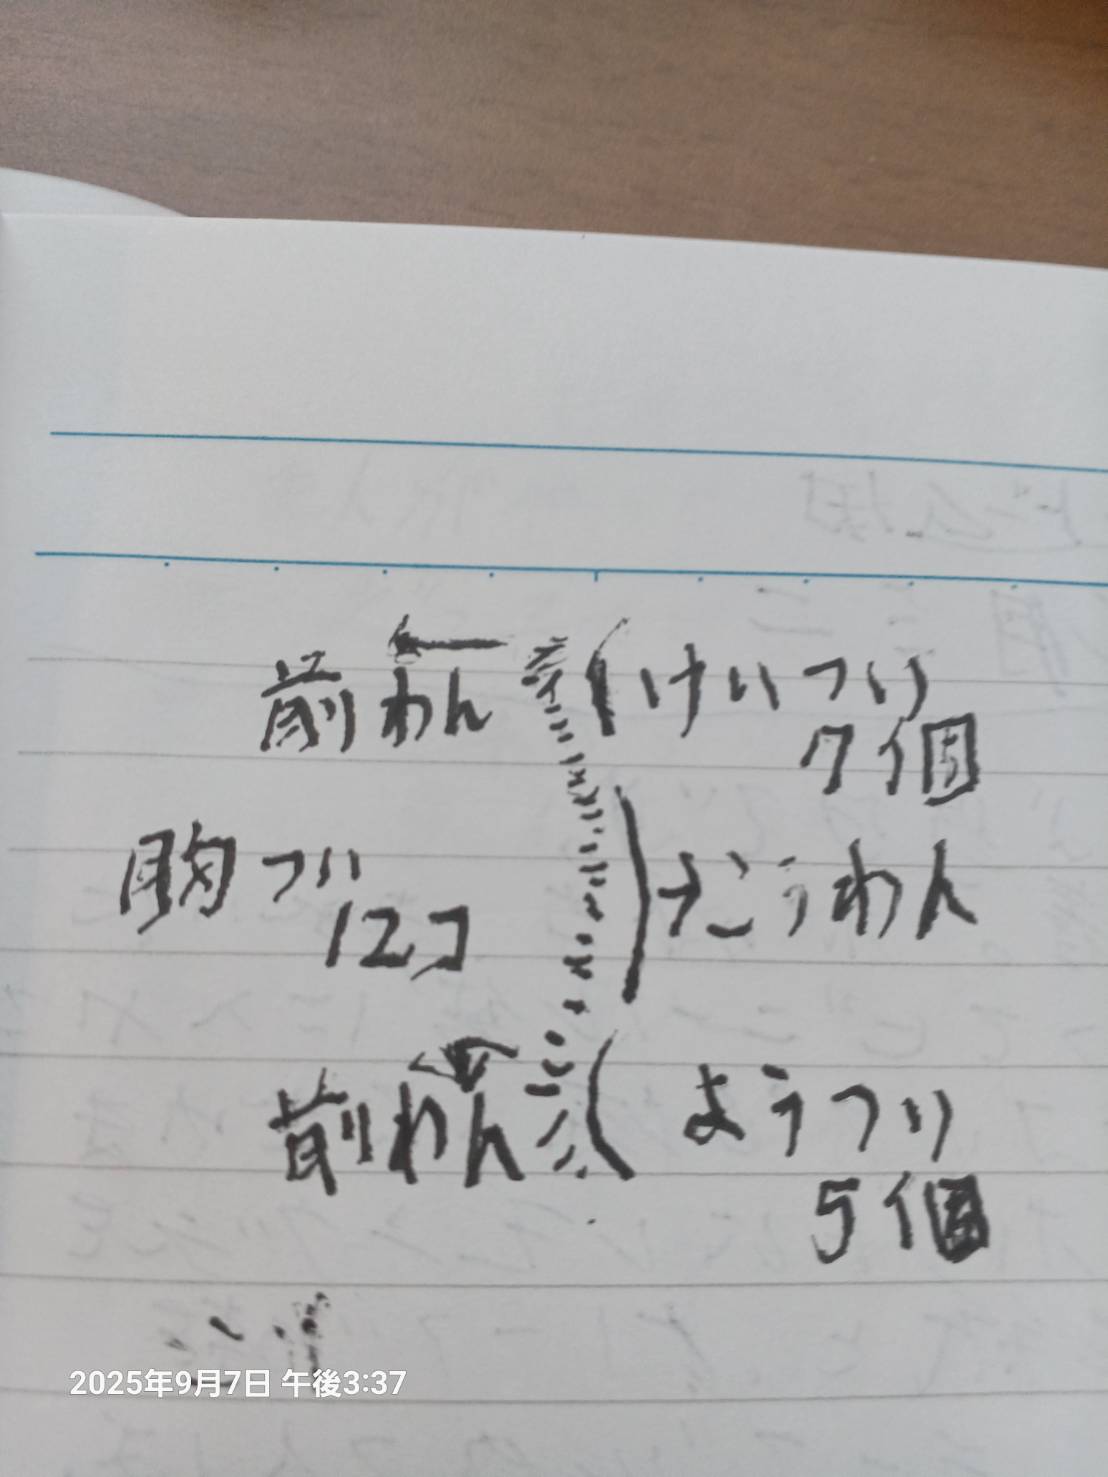 前わん けいつい
7個
胸つい こうわん
12コ
前わん ようつい
5個
2025年9月7日 午後3:37